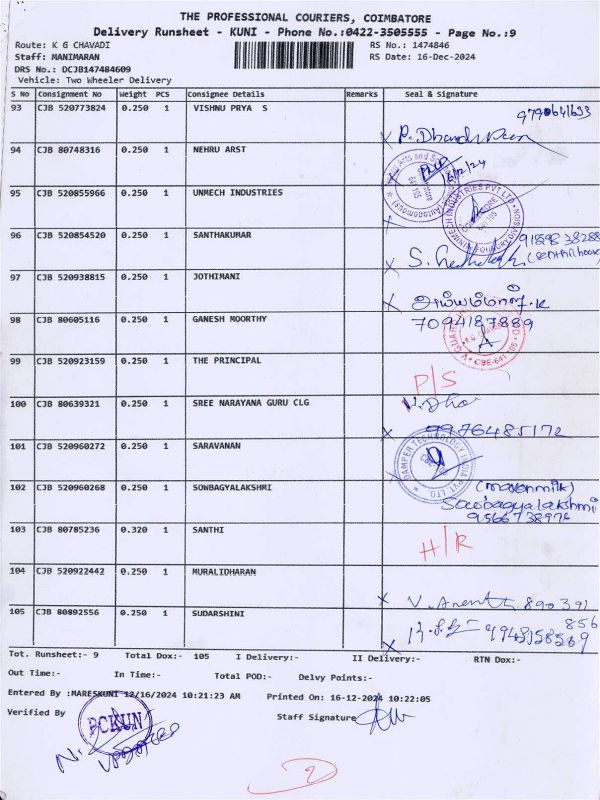 THE PROFESSIONAL COURIERS, COIMBATORE
Delivery Runsheet - KUNI - Phone No.:0422-3505555 - Page No.:9
Route: K G CHAVADI RS No.: 1474846
Staff: MANIMARAN RS Date: 16-Dec-2024
DRS No.: DCJB147484609
Vehicle: Two Wheeler Delivery
S No Consignment No Weight PCS Consignee Details Remarks Seal & Signature
93 CJB 520773824 0.250 1 VISHNU PRYA S
94 CJB 80748316 0.250 1 NEHRU ARST
16/12/24
95 CJB 520855966 0.250 1 UNMECH INDUSTRIES
96 CJB 520854520 0.250 1 SANTHAKUMAR
97 CJB 520938815 0.250 1 JOTHIMANI
98 CJB 80605116 0.250 1 GANESH MOORTHY 7094187889
99 CJB 520923159 0.250 1 THE PRINCIPAL
P/S
100 CJB 80639321 0.250 1 SREE NARAYANA GURU CLG
9976485172
101 CJB 520960272 0.250 1 SARAVANAN
DAMPER TECHNOLOGY INDIA PVT. LTD.
102 CJB 520960268 0.250 1 SOWBAGYALAKSHMI
Sowbagyalakshmi
103 CJB 80785236 0.320 1 SANTHI
H/R
104 CJB 520922442 0.250 1 MURALIDHARAN
105 CJB 80892556 0.250 1 SUDARSHINI
Tot. Runsheet:- 9 Total Dox:- 105 I Delivery:- II Delivery:- RTN Dox:-
Out Time:- In Time:- Total POD:- Delvy Points:-
Entered By :MARESKUNI 12/16/2024 10:21:23 AM Printed On: 16-12-2024 10:22:05
Verified By Staff Signature
PCKUN
2